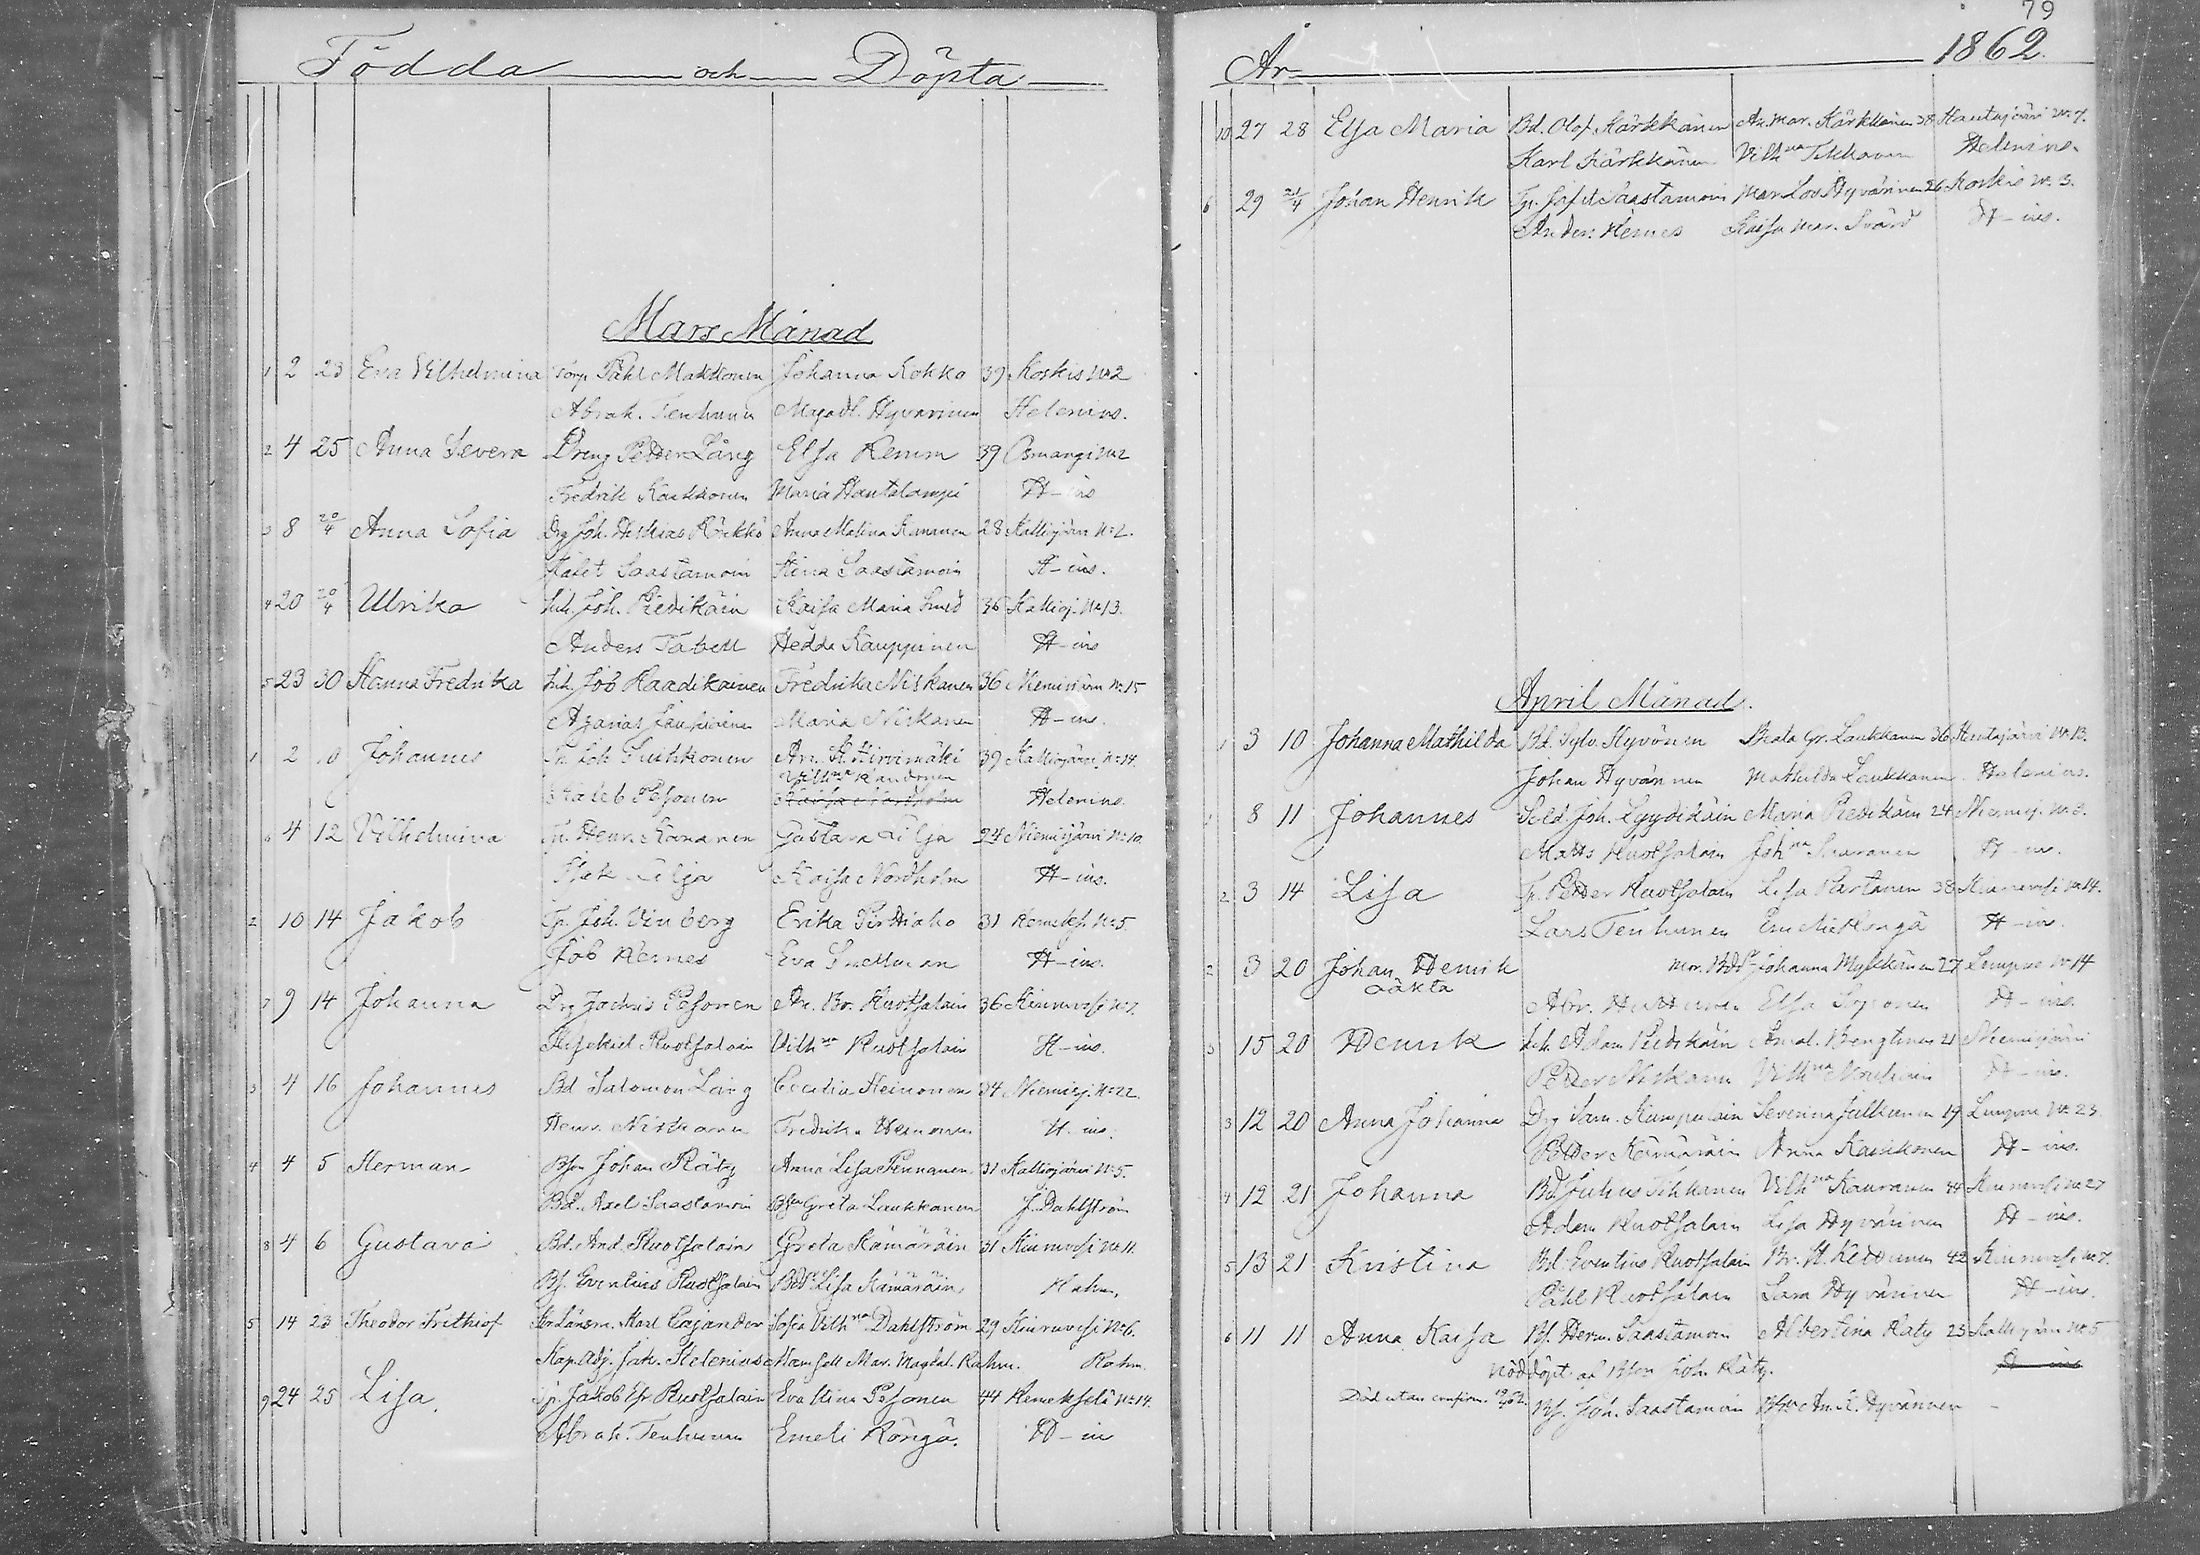 Födda och Döpta
Mars Månad
1 2 23 Eva Vilhelmina Torp. Påhl Makkonen Johanna Kohko 39 Koskis No 2
Abrah. Tenhunen Magdl. Hyvärinen Helenius.
2 4 25 Anna Severa Dreng Petter Lång Elsa Remm 39 Osmangi No 2
Fredrik Karkkonen Maria Hautalampi H-ius
3 8 20/4 Anna Sofia Drg Joh. Hiskias Röickkö Anna Malina Kananen 28 Kalliojärvi No 2.
Jafet Saastamoin Stina Saastamoin H-ius.
4 20 20/4 Ulrika Inh. Joh. Piedikäin Kaisa Maria Smed 36 Kallioj. No 13.
Anders Tabell Hedda Kauppinen H-ius
5 23 30 Hanna Fredrika Inh. Job Raadikainen Fredrika Niskanen 36 Niemisjärvi No 15
Maria Niskanen H-ius.
1 2 10 Johannes Tp. Joh. An. K. Hirvimäki 39 Kalliojärvi No 14.
Vilhna
Kaleb Pesonen Kaisa Nordholm Helenius.
6 4 12 Vilhelmina Tp. Henr. Kananen Gustava Lilja 24 Niemisjärvi No 10.
Isak Lilja Kaisa Nordholm H-ius.
2 10 14 Jakob Tp. Joh. Vinberg Erika Pirttiaho 31 Remeksj. No 5.
Job Remes Eva H-ius.
7 9 14 Johanna Drg Zachris Pesonen An. Br. Ruotsalain 36 Kiuruvesi No 7.
Hesekiel Ruotsalain Vilhna Ruotsalain H-ius.
3 4 16 Johannes Bd. Salomon Lång Cecilia Heinonen 34 Niemisj. No 22.
Henr. Niskanen Fredrika Heinonen H-ius.
4 4 5 Herman Bsn Johan Räty Anna Lisa Pennanen 31 Kalliojärvi No 5.
Bd. Axel Saastamoin Greta Laukkanen J. Dahlström
8 4 6 Gustava Bd. And. Ruotsalain Greta Kämäräin 31 Kiuruvesi No 11.
Bs. Eventius Ruotsalain Lisa Kämäräin Rahm.
5 14 23 Theodor Frithiof Karl Cajander Sofia Vilhna Dahlström 29 Kiuruvesi No 6.
Kap.adj. Jak. Helenius Mamsell Mar. Magdal. Rahm. Rahm.
9 24 25 Lisa Tp. Jakob Ruotsalain Eva Stina Pesonen 44 Remekselä No 14.
Abrah. Tenhunen Emeli Röngä. H-ius
79
År 1862.
10 27 28 Elsa Maria Bd. Olof Kärkkänen An. Mar. Kärkkänen 38 Hautajärvi No 7.
Karl Kärkkänen Vilhna Tikkanen Helenius.
6 29 21/4 Johan Henrik Tp. Jafet Saastamoin Mar. Lov. Hyvärinen 26 Koskis No 3.
Anders Remes Kaisa Mar. Svärd H-ius.
April Månad.
1 3 10 Johanna Mathilda Bd. Sylv. Hyvönen Beata Gr. Laukkanen 36 Hautajärvi No 13.
Johan Hyvärinen Mathilda Laukkanen Helenius.
1 8 11 Johannes Sold. Joh. Lyydikäin Maria Piedikäin 24 Niemisj. No 8.
Matts Ruotsalain Johna H-ius.
2 3 14 Lisa Tp. Petter Ruotsalain Lisa Partanen 38 Kiuruvesi No 14.
Lars Tenhunen Emelie Röngä H-ius
2 3 20 Johan Henrik Mor. Johanna Mykkänen 27 Lungus No 14
oäkta
Abr. Huttunen Elsa H-ius.
3 15 20 Henrik Inh. Adam Piedikäin Amal. Bengtinen 21 Niemisjärvi
Petter Niskanen Vilhna H-ius.
3 12 20 Anna Johanna Drg Sam. Kumpulain Severina Julkunen 19 No 23.
Petter Kämäräin Anna Kaikkonen H-ius.
4 12 21 Johanna Bd. Julius Tikkanen Vilhna Kauranen 44 Kiuruvesi No 27
Adam Ruotsalain Lisa Hyvärinen H-ius.
5 13 21 Kristina Bd. Eventius Ruotsalain Br. K. Kettunen 42 Kiuruvesi No 7.
Påhl Ruotsalain Sara Hyvärinen H-ius.
6 11 11 Anna Kaisa Bs. Herm. Saastamoin Albertina Räty 23 Kalliojärvi No 5
Nöddöpt af Bsn Joh. Räty. H-ius
Död utan confirm. Bs. Joh. Saastamoin An. K. Hyvärinen